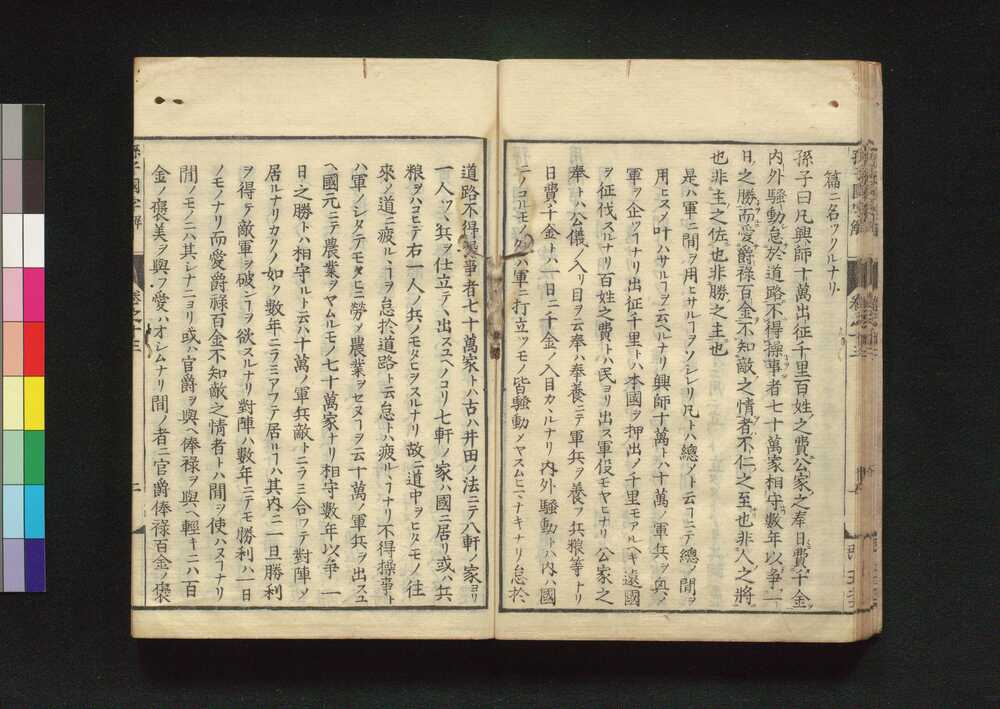 篇ニ名ツクルナリ
孫子曰凡興師十萬出征千里百姓之費公家之奉日費千金
内外騷動怠於道路不得操事者七十萬家相守數年以爭一
日之勝而愛爵祿百金不知敵之情者不仁之至也非人之將
也非主之佐也非勝之主也
是ハ軍ニ間ヲ用ヒサルヿヲソシレリ凡トハ總ノト云ヿニテ總ノ間ヲ
用ヒスノ叶ハサルヿヲ云ヘルナリ興師十萬トハ十萬ノ軍兵ヲ興ノ
軍ヲ企ツヿナリ出征千里トハ本國ヲ押出ノ千里モアルヘキ遠國
ヲ征伐スルナリ百姓之費トハ民ヨリ出ス軍役モヤヒナリ公家之
奉トハ公儀ノ入リ目ヲ云奉ハ奉養ニテ軍兵ヲ養フ兵粮等ナリ
日費千金トハ一日ニ千金ノ入目カヽルナリ内外騷動トハ内ハ國
ニノコルモノ外ハ軍ニ打立ツモノ皆騷動ノヤスムヒマナキナリ怠於
道路不得操事者七十萬家トハ古ハ井田ノ法ニテ八軒ノ家ヨリ
一人ツヽ兵ヲ仕立テヽ出スユヘノコリ七軒ノ家ハ國ニ居リ或ハ兵
粮ヲハコヒテ右一人ノ兵ノモタヒヲスルナリ故ニ道中ヲヒタモノ往
來ノ道ニ疲ルヽヿヲ怠於道路ト云怠トハ疲ルヽヿナリ不得操事ト
ハ軍ノシタテモタヒニ勞ノ農業ヲセヌヿヲ云十萬ノ軍兵ヲ出スユ
ヘ國元ニテ農業ヲヤムルモノ七十萬家ナリ相守數年以爭一
日之勝トハ相守ルト云ハ十萬ノ軍兵敵トニラミ合フテ對陣ノ
居ルナリカクノ如ク數年ニラミアフテ居ルヿハ其内ニ一旦勝利
ヲ得テ敵軍ヲ破ンヿヲ欲スルナリ對陣ハ數年ニテモ勝利ハ一日
ノモノナリ而愛爵祿百金不知敵之情者トハ間ヲ使ハヌヿナリ
間ノモノニハ其シナニヨリ或ハ官爵ヲ與ヘ俸祿ヲ與ヘ輕キニハ百
金ノ褒美ヲ與フ愛ハオシムナリ間ノ者ニ官爵俸祿百金ノ褒
孫子國字解
卷之十三
二